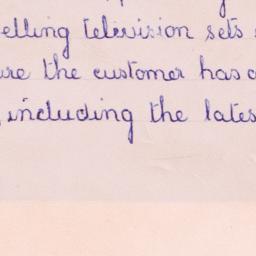 elling television sets
ure the customer has
, including the lates